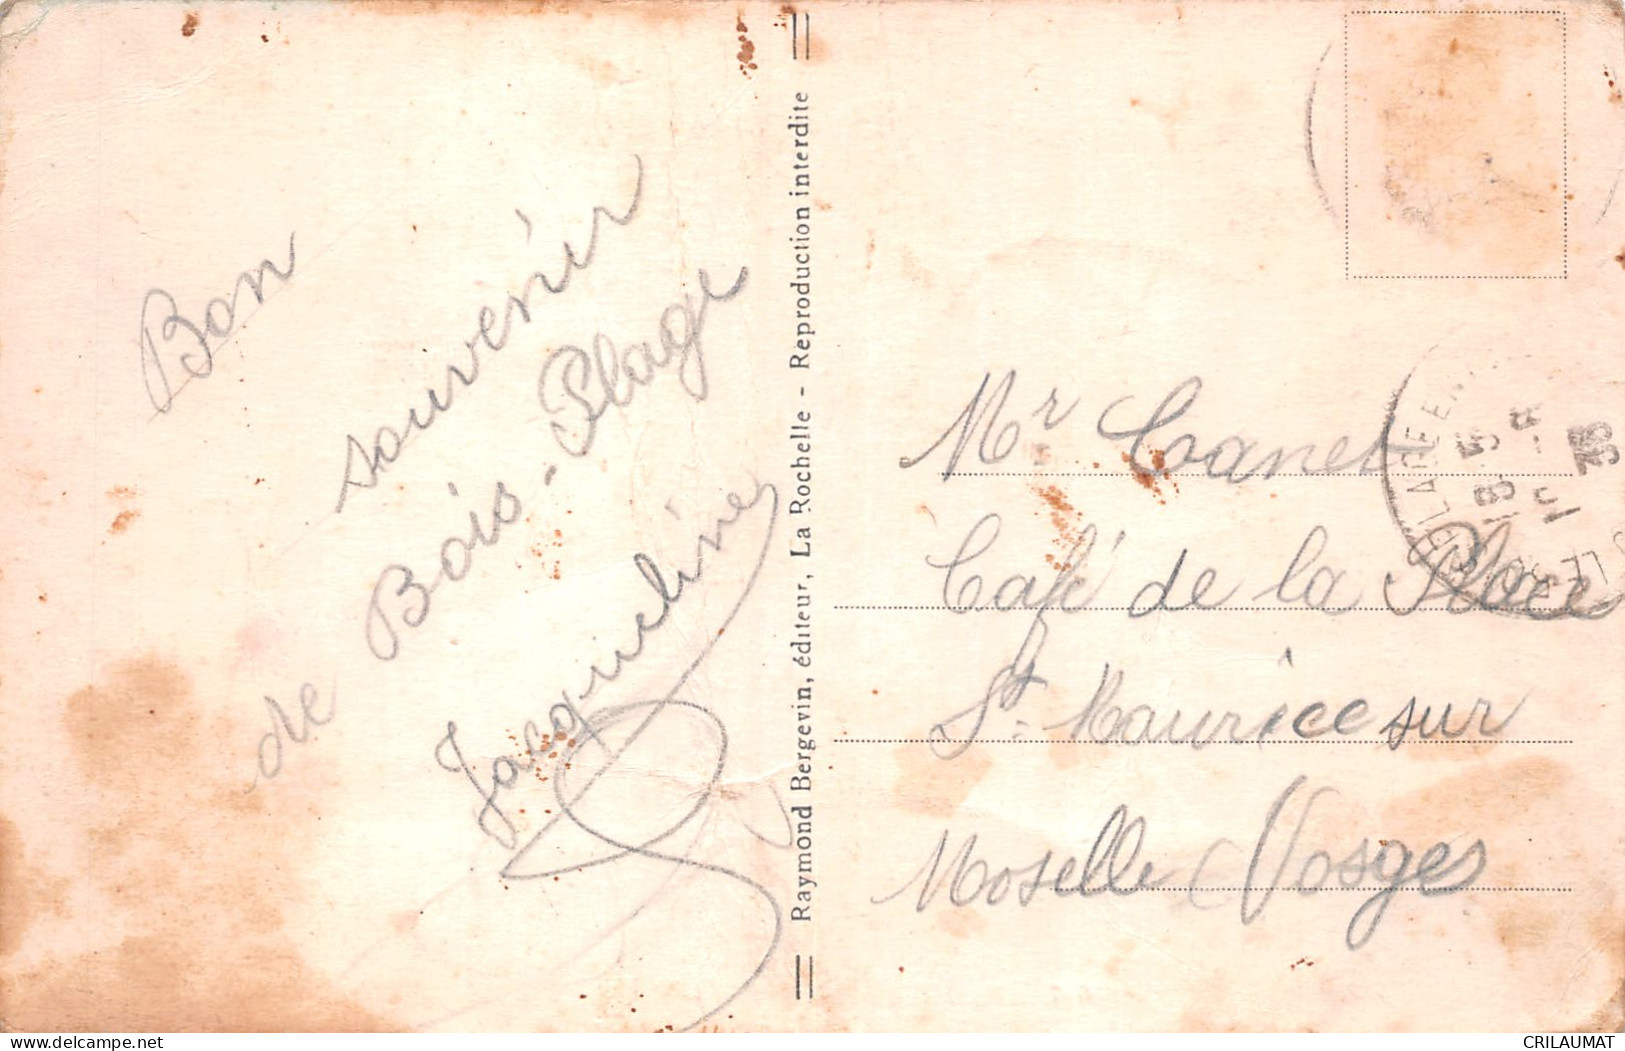 Bon
souvenir
de Bois-Plage
Jacqueline
Raymond Bergevin, éditeur, La Rochelle - Reproduction interdite
Mr Canet
Café de la Place
St. Maurice sur
Moselle Vosges
18 5
10 -8
35
LE
delcampe.net
CRILAUMAT